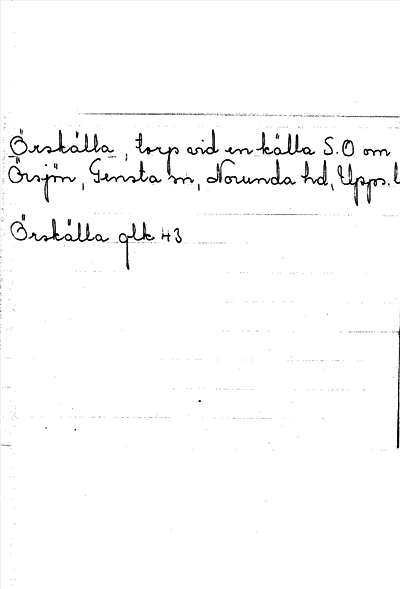 Örskälla, torp vid en källa S.O om
Örsjön, Gensta sn, Norunda hd, Upps. l
Örskälla glk 43